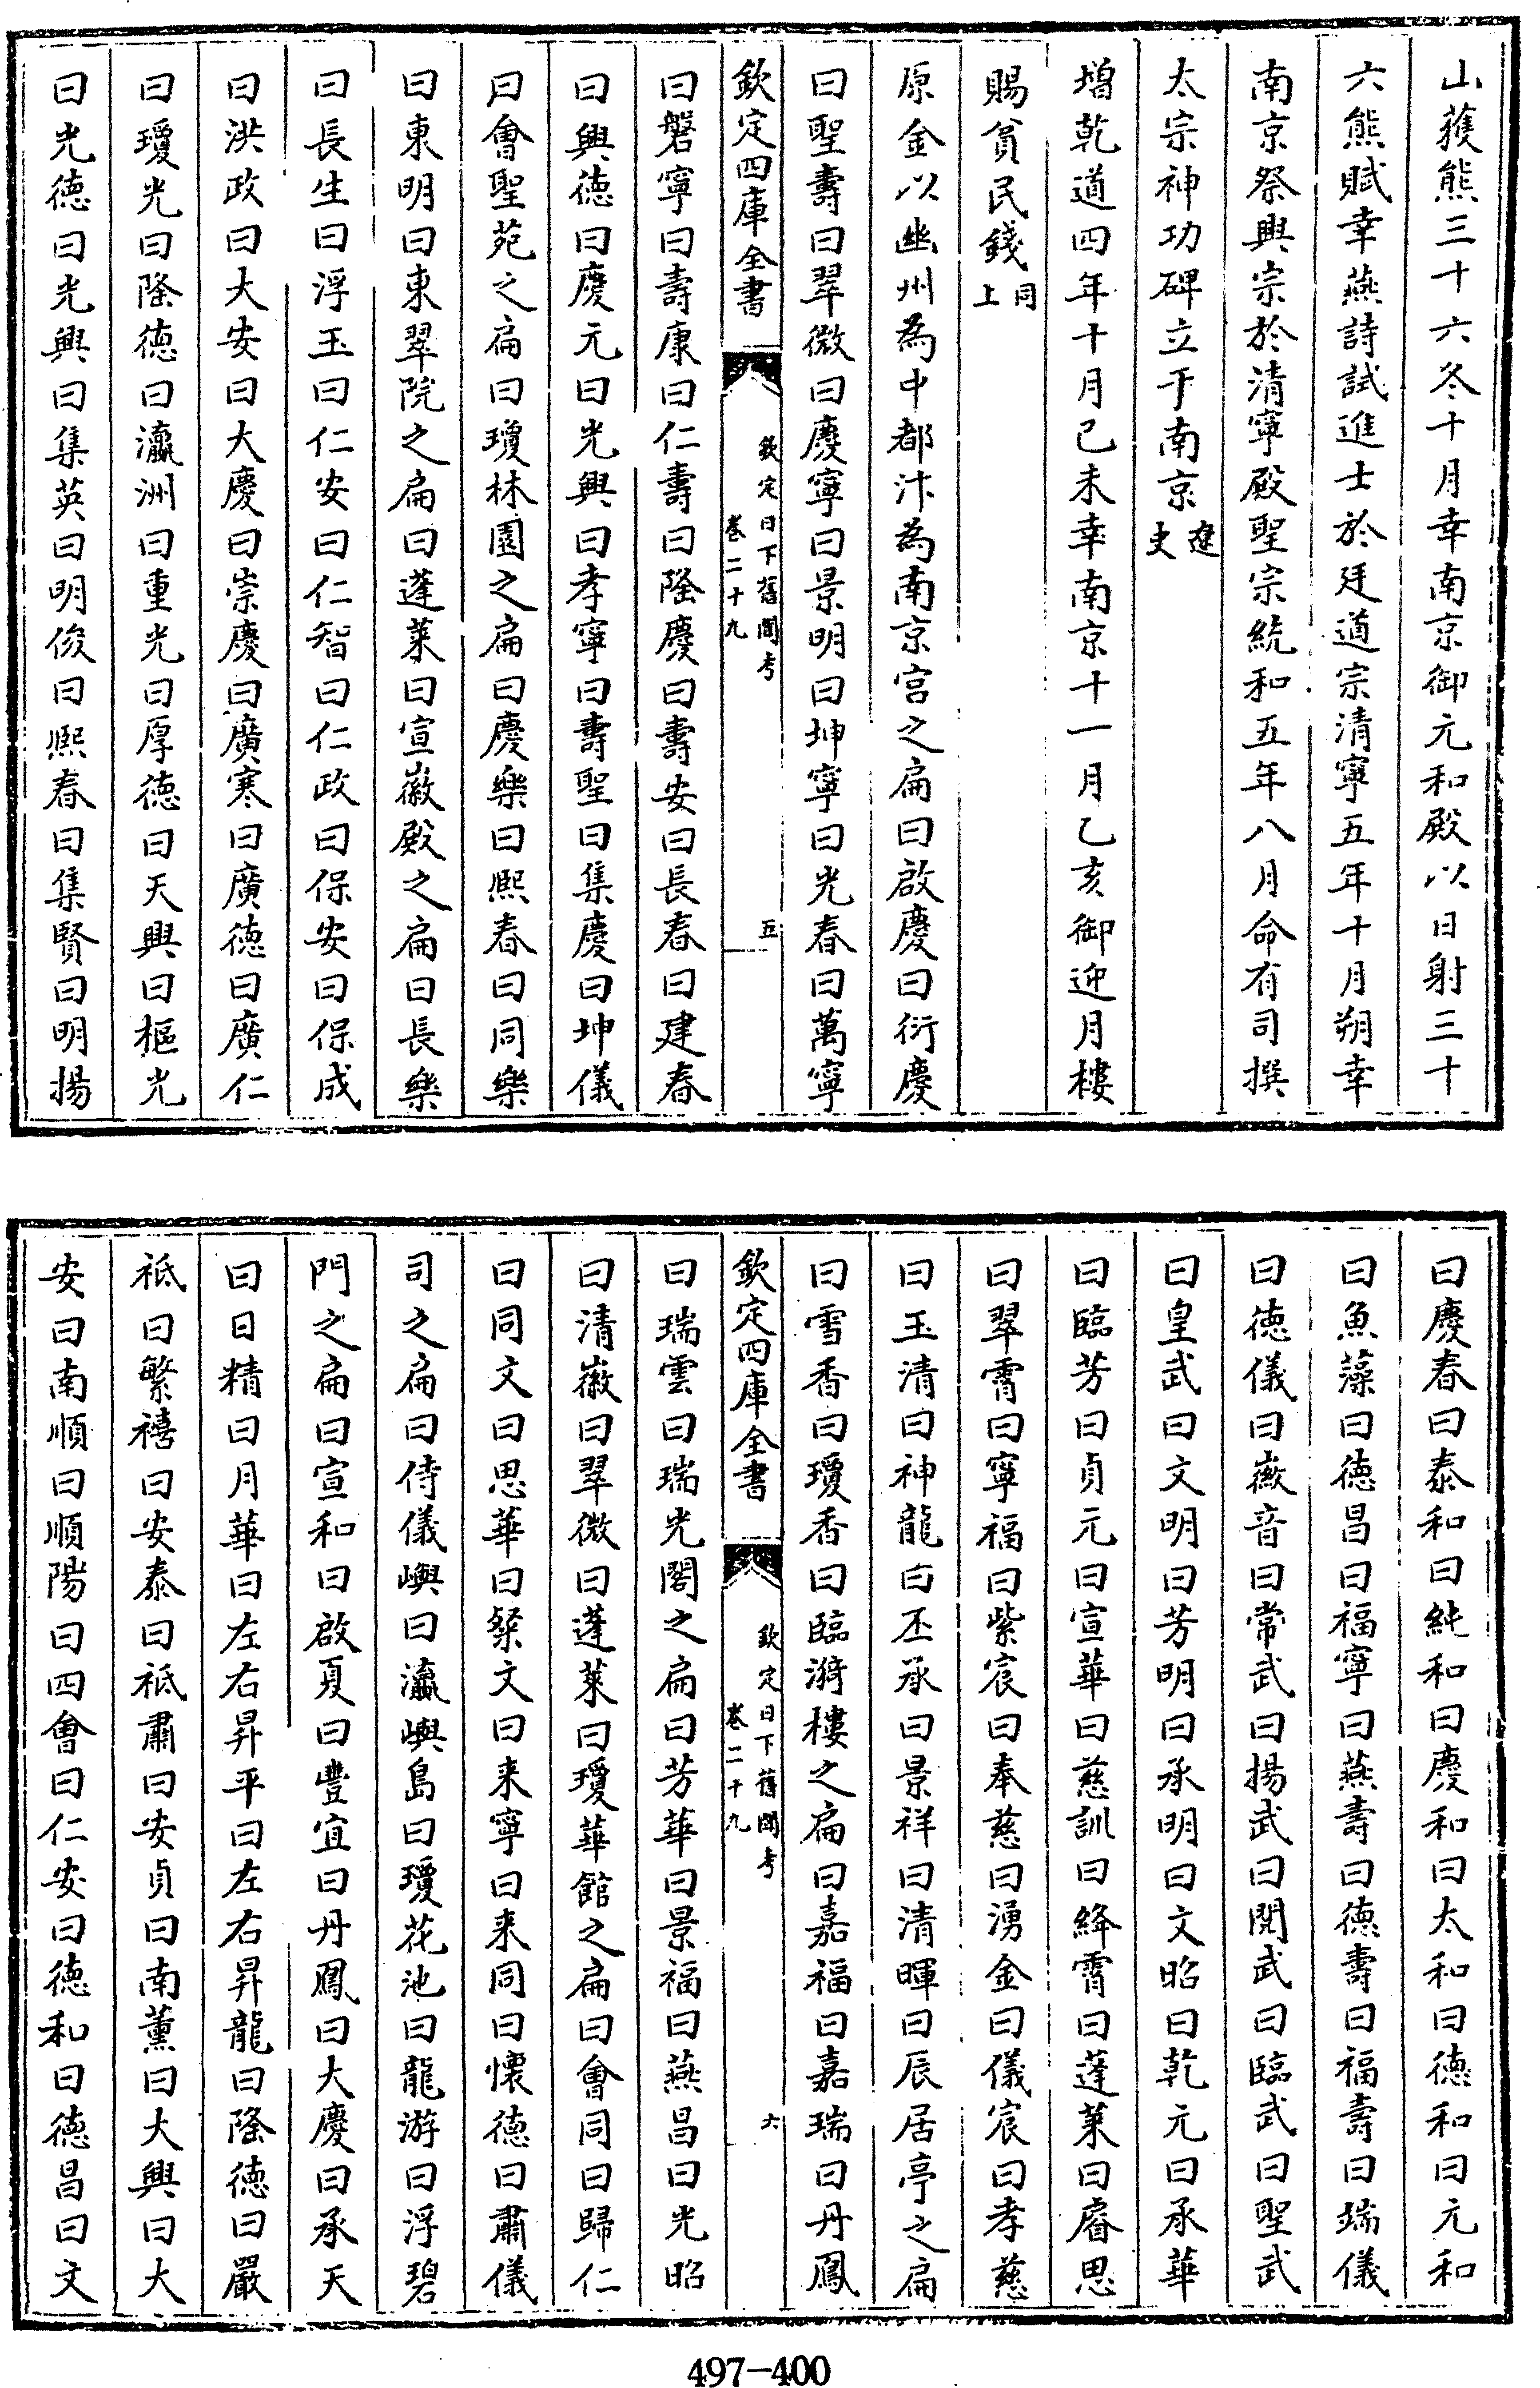 山獲熊三十六冬十月幸南京御元和殿以日射三十
六熊賦幸燕詩試進士於廷道宗清寧五年十月朔幸
南京祭興宗於清寧殿聖宗統和五年八月命有司撰
太宗神功碑立于南京遼史
增乾道四年十月己未幸南京十一月乙亥御迎月樓
賜貧民錢同上
原金以幽州為中都汴為南京宮之扁曰啟慶曰衍慶
曰聖壽曰翠微曰慶寧曰景明曰坤寧曰光春曰萬寧
欽定四庫全書
欽定日下舊聞考
卷二十九
五
曰磐寧曰壽康曰仁壽曰隆慶曰壽安曰長春曰建春
曰興德曰慶元曰光興曰孝寧曰壽聖曰集慶曰坤儀
曰會聖苑之扁曰瓊林園之扁曰慶樂曰熙春曰同樂
曰東明曰東翠院之扁曰蓬萊曰宣徽殿之扁曰長樂
曰長生曰浮玉曰仁安曰仁智曰仁政曰保安曰保成
曰洪政曰大安曰大慶曰崇慶曰廣寒曰廣德曰廣仁
曰瓊光曰隆德曰瀛洲曰重光曰厚德曰天興曰樞光
曰光德曰光興曰集英曰明俊曰熙春曰集賢曰明揚
曰慶春曰泰和曰純和曰慶和曰太和曰德和曰元和
曰魚藻曰德昌曰福寧曰燕壽曰德壽曰福壽曰端儀
曰德儀曰徽音曰常武曰揚武曰閱武曰臨武曰聖武
曰皇武曰文明曰芳明曰承明曰文昭曰乾元曰承華
曰臨芳曰貞元曰宣華曰慈訓曰絳霄曰蓬萊曰睿思
曰翠霄曰寧福曰紫宸曰奉慈曰湧金曰儀宸曰孝慈
曰玉清曰神龍曰丕承曰景祥曰清暉曰辰居亭之扁
曰雪香曰瓊香曰臨漪樓之扁曰嘉福曰嘉瑞曰丹鳳
欽定四庫全書
欽定日下舊聞考
卷二十九
六
曰瑞雲曰瑞光閣之扁曰芳華曰景福曰燕昌曰光昭
曰清徽曰翠微曰蓬萊曰瓊華館之扁曰會同曰歸仁
曰同文曰思華曰粲文曰来寧曰来同曰懷德曰肅儀
司之扁曰侍儀嶼曰瀛嶼島曰瓊花池曰龍游曰浮碧
門之扁曰宣和曰啟夏曰豐宜曰丹鳳曰大慶曰承天
曰日精曰月華曰左右昇平曰左右昇龍曰隆德曰嚴
祗曰繁禧曰安泰曰祗肅曰安貞曰南薰曰大興曰大
安曰南順曰順陽曰四會曰仁安曰德和曰德昌曰文
497-400